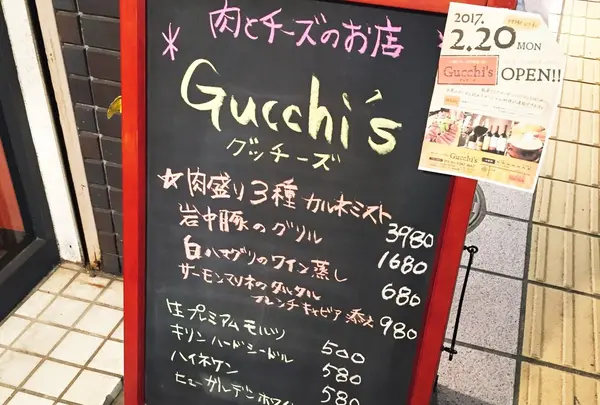 肉とチーズのお店
Gucchi's
グッチーズ
☆肉盛り3種 カルネミスト 3980
岩中豚のグリル 1680
白ハマグリのワイン蒸し 680
サーモンマリネのタルタル
フレンチキャビア添え 980
生プレミアムモルツ 500
キリンハードシードル 580
ハイネケン 580
ヒューガルデンホワイ
2017.
2.20 MON
Gucchi's OPEN!!
Gucchi's